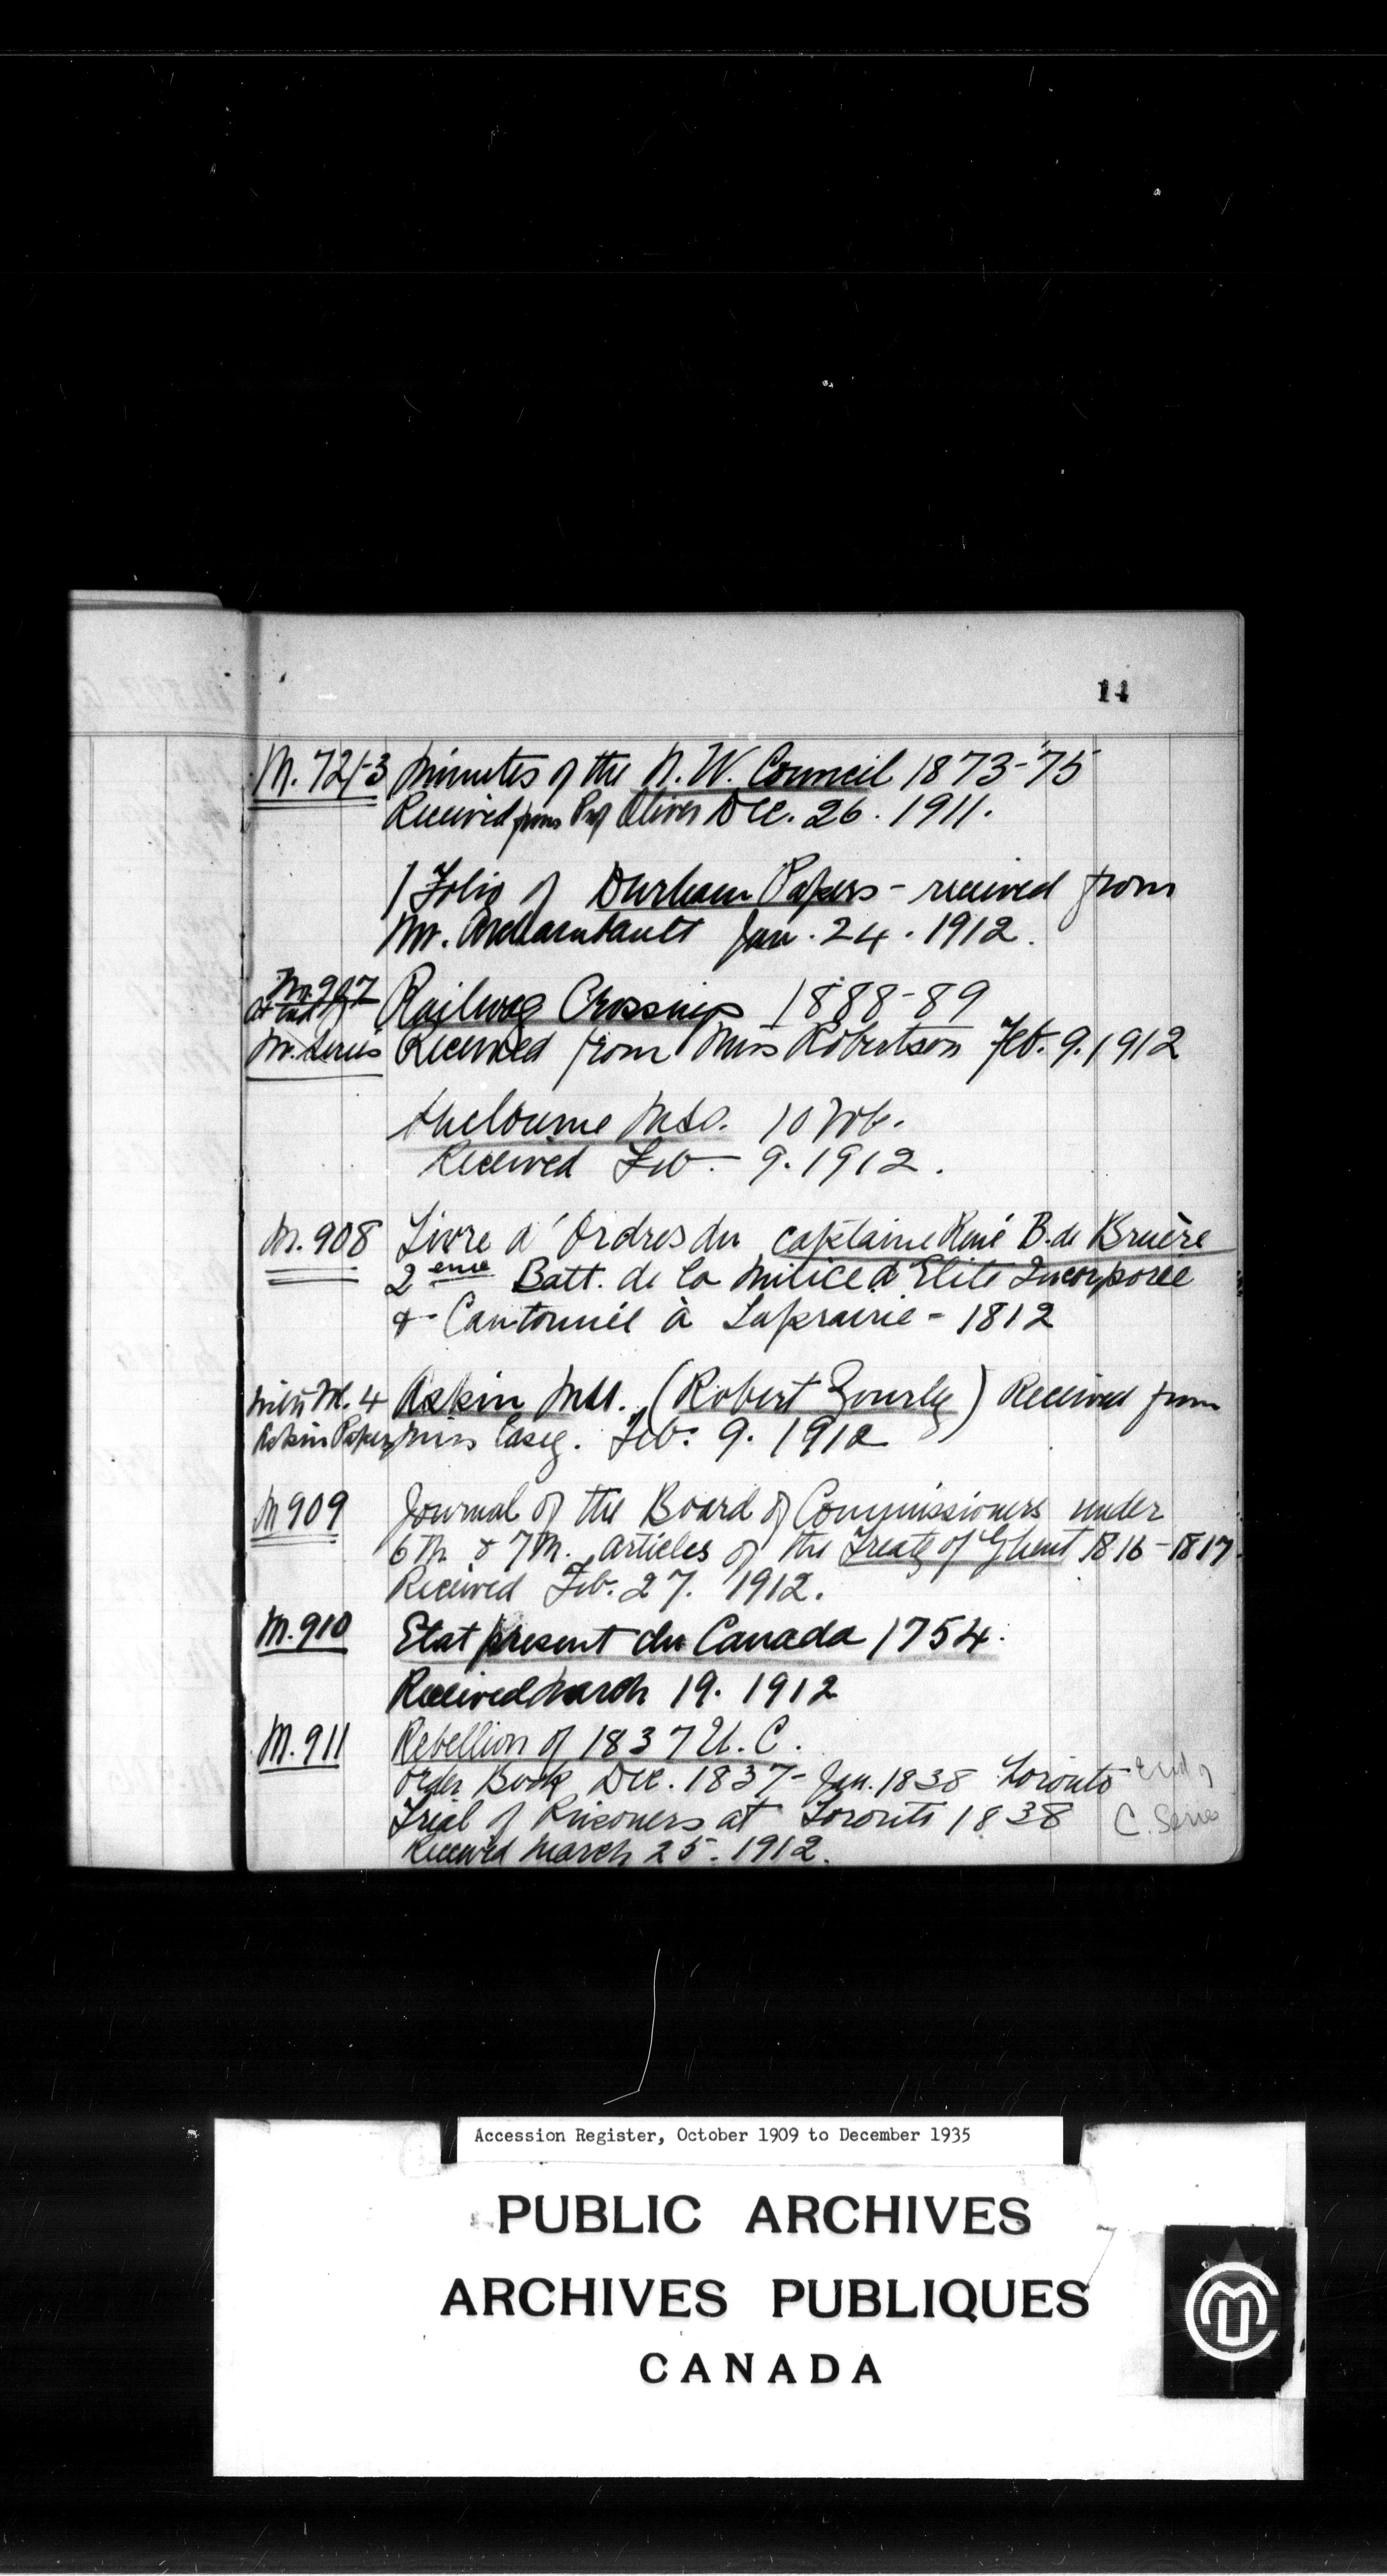 14
M. 721-3 Minutes of the N. W. Council 1873-'75
Received from Prof Oliver Dec. 26. 1911.
1 Folio of Durham Papers - received from
Mr. Archambault Jan. 24. 1912.
M. 907 Railway Crossings 1888-89
M. Series Received from Miss Robertson Feb. 9. 1912
Shelburne MSS. 10 Vols.
Received Feb - 9. 1912.
M. 908 Livre d'Ordres du Captaine René B. de Bruère
2eme Batt. de la Milice d'Elite Incorporée
& Cantonnié à Laprairie - 1812
with Vol. 4 Askin MSS. (Robert Gourly) Received from
Askin Papers Miss Casey. Feb. 9. 1912
M 909 Journal of the Board of Commissioners under
6th & 7th. Articles of the Treaty of Ghent 1816-1817.
Received Feb. 27. 1912.
M. 910 Etat present du Canada 1754.
Received March 19. 1912
M. 911 Rebellion of 1837 U. C.
Order Book Dec. 1837 - Jan. 1838 Toronto End of
Trial of Prisoners at Toronto 1838 C. Series
Received March 25. 1912.
Accession Register, October 1909 to December 1935
PUBLIC ARCHIVES
ARCHIVES PUBLIQUES
CANADA